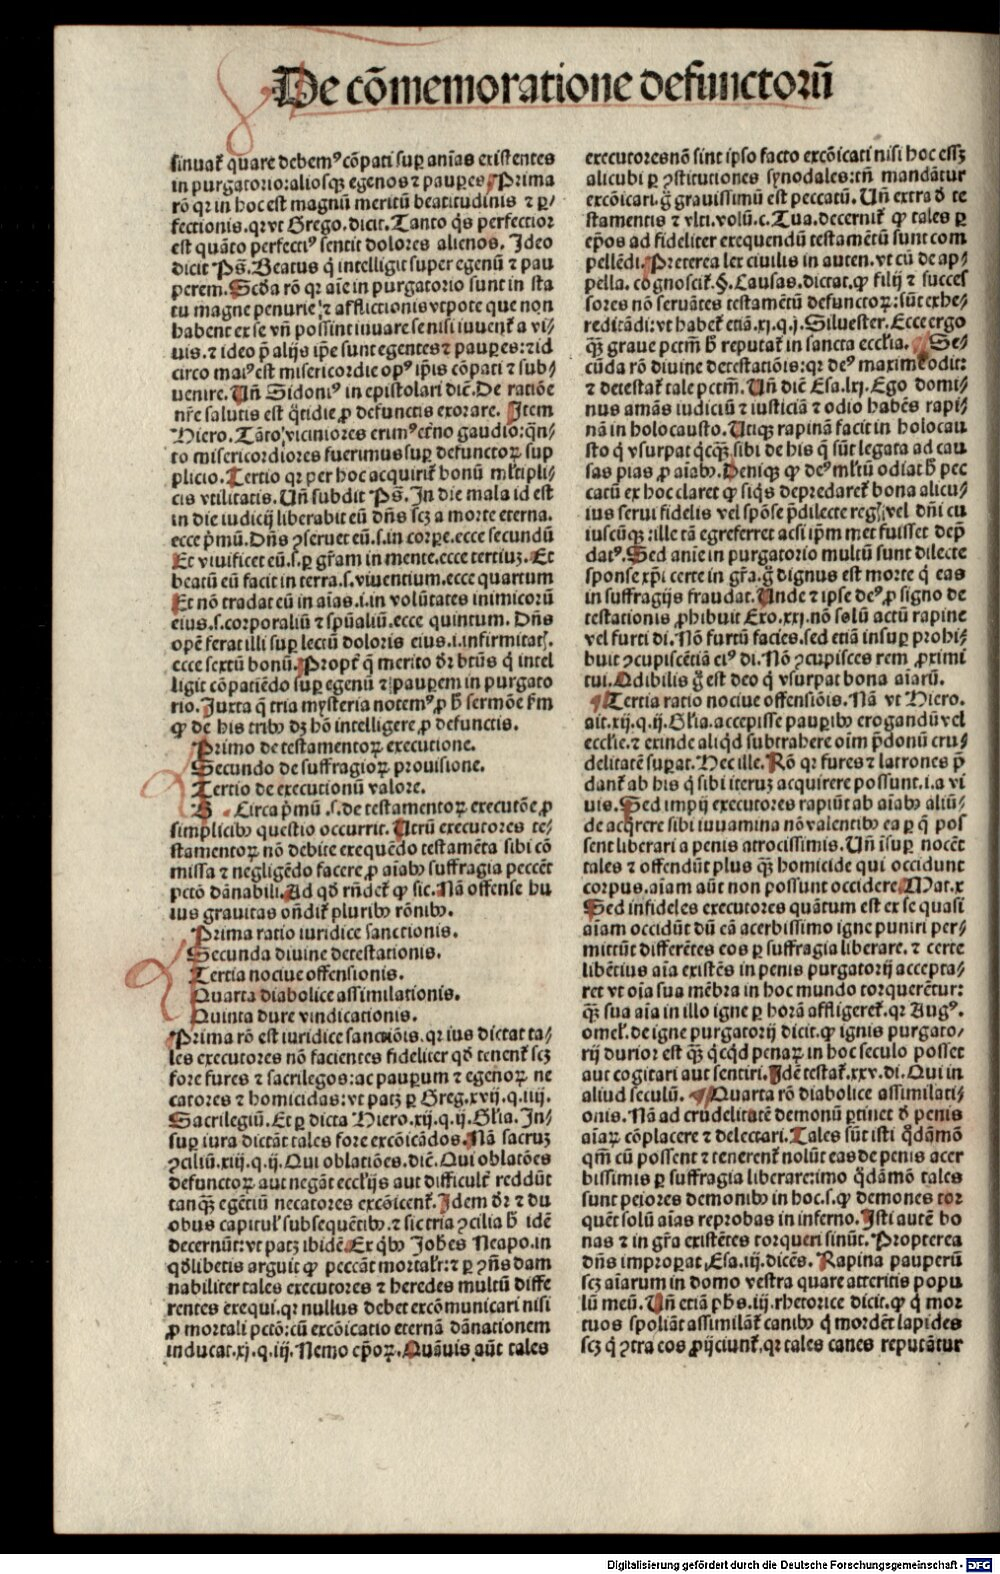 De cōmemoratione defunctorū
sinuat᷑ quare debemꝰ cōpati suꝑ anīas existentes
in purgatorio: aliosqꝫ egenos ⁊ pauꝑes. Prima
rō qr in hoc est magnū meritū beatitudinis ⁊ ꝑ/
fectionis. qr vt Grego. dicit. Tanto q̇s perfectior
est quāto perfectiꝰ sentit dolores alienos. Ideo
dicit Ps̄. Beatus q̇ intelligit super egenū ⁊ pau
perem. Scḋa rō qr aīe in purgatorio sunt in sta
tu magne penurie ⁊ afflictionis vtpote que non
habent ex se vn̄ possint iuuare se nisi iuuent᷑ a vi/
uis. ⁊ ideo p̄ alijs ip̄e sunt egentes ⁊ pauꝑes: ⁊ id
circo maiꝰ est misericordie opꝰ ip̄is cōpati ⁊ sub/
uenire. Vn̄ Sidoniꝰ in epistolari dic̄. De ratiōe
nr̄e salutis est q̇tidie ꝓ defunctis exorare. Item
Hiero. Tāto viciniores erimꝰ et̄no gaudio: q̄n/
to misericordiores fuerimus suꝑ defunctoꝝ sup
plicio. Tertio qr per hoc acquirit᷑ bonū mĺtipli/
cis vtilitatis. Vn̄ subdit Ps̄. In die mala id est
in die iudicij liberabit eū dn̄s scꝫ a morte eterna.
ecce p̓mū. Dn̄s ꝯseruet eū. s. in corꝑe. ecce secundū
Et viuificet eū. s. ꝑ gr̄am in mente. ecce tertiuꝫ. Et
beatū eū facit in terra. s. viuentium. ecce quartum
Et nō tradat eū in aīas. i. in volūtates inimicorū
eius. s. corporaliū ⁊ spūaliū. ecce quintum. Dn̄s
opē ferat illi suꝑ lectū doloris eius. i. infirmitat᷑.
ecce sextū bonū. Propt᷑ q̄ merito dr̄ bt̄us q̇ intel
ligit cōpatiēdo suꝑ egenū ⁊ pauꝑem in purgato
rio. Juxta q̄ tria mysteria notemꝰ ꝓ ħ sermōe ẜm
ꝙ de his tribꝰ dꝫ hō intelligere ꝓ defunctis.
Primo de testamentoꝝ executione.
Secundo de suffragioꝝ prouisione.
Tertio de executionū valore.
B. Circa p̓mū. s. de testamentoꝝ executōe ꝓ
simplicibꝰ questio occurrit. Vtrū executores te/
stamentoꝝ nō debite exequēdo testamēta sibi cō
missa ⁊ negligēdo facere ꝓ aīabꝰ suffragia peccēt
pctō dānabili. Ad qḋ rn̄det᷑ ꝙ sic. Nā offense hu
ius grauitas on̄dit᷑ pluribꝰ rōnibꝰ.
Prima ratio iuridice sanctionis.
Secunda diuine detestationis.
Tertia nociue offensionis.
Quarta diabolice assimilationis.
Quinta dure vindicationis.
Prima rō est iuridice sanctiōis. qr ius dictat ta/
les executores nō facientes fideliter qḋ tenent᷑ scꝫ
fore fures ⁊ sacrilegos: ac pauꝑum ⁊ egenoꝝ ne
catores ⁊ homicidas: vt patꝫ ꝑ Greg. xvij. q. iiij.
Sacrilegiū. Et ꝑ dicta Hiero. xij. q. ij. Gl̄ia. In/
suꝑ iura dictāt tales fore excōicādos. Nā sacruꝫ
ꝯciliū. xiij. q. ij. Qui oblatiōes. dic̄. Qui oblatōes
defunctoꝝ aut negāt eccl̄ijs aut difficult᷑ reddūt
tanqꝫ egētiū necatores excōicent᷑. Idem dr̄ ⁊ du
obus capitul᷑ subsequētibꝰ. ⁊ sic tria ꝯcilia ħ idē
decernūt: vt patꝫ ibidē. Ex q̇bꝰ Joħes Neapo. in
qḋlibetis arguit ꝙ peccāt mortalr̄: ⁊ ꝑ ꝯn̄s dam
nabiliter tales executores ⁊ heredes multū diffe
rentes exequi. qr nullus debet excōmunicari nisi
ꝓ mortali pctō: cū excōicatio eternā dānationem
inducat. xj. q. iij. Nemo ep̄oꝝ. Quāuis aūt tales
executores nō sint ipso facto excōicati nisi hoc essꝫ
alicubi ꝑ ꝯstitutiones synodales: tn̄ mandātur
excōicari. g̊ grauissimū est peccatū. Vn̄ extra ḋ te
stamentis ⁊ vlti. volū. c. Tua. decernit᷑ ꝙ tales ꝑ
ep̄os ad fideliter exequendū testamētū sunt com
pellēdi. Preterea lex ciuilis in auten. vt cū de ap/
pella. cognoscit᷑. §. Causas. dictat. ꝙ filij ⁊ succes
sores nō seruātes testamētū defunctoꝝ: sūt exhe/
reditādi: vt habet᷑ etiā. xj. q. j. Siluester. Ecce ergo
qꝫ graue pctm̄ ħ reputat᷑ in sancta eccl̄ia. Se/
cūda rō diuine detestatiōis: qr deꝰ maxime odit:
⁊ detestat᷑ tale pctm̄. Vn̄ dic̄ Esa. lxj. Ego domi/
nus amās iudiciū ⁊ iusticiā ⁊ odio habēs rapi/
nā in holocausto. Vtiqꝫ rapinā facit in holocau
sto q̇ vsurpat q̇cqꝫ sibi de his q̄ sūt legata ad cau
sas pias ꝓ aīabꝰ. Deniqꝫ ꝙ deꝰ ml̄tū odiat ħ pec
catū ex hoc claret ꝙ siq̇s depredaret᷑ bona alicu/
ius serui fidelis vel spōse p̄dilecte reg᷑ vel dn̄i cu
iuscūqꝫ: ille tā egre ferret acsi ip̄m met fuisset dep̄
datꝰ. Sed anīe in purgatorio multū sunt dilecte
sponse xp̄i certe in gr̄a. g̊ dignus est morte q̇ eas
in suffragijs fraudat. Unde ⁊ ipse deꝰ ꝓ signo de
testationis ꝓhibuit Exo. xxj. nō solū actū rapine
vel furti di. Nō furtū facies. sed etiā insuꝑ prohi/
buit ꝯcupiscētiā eiꝰ di. Nō ꝯcupisces rem ꝓximi
tui. Odibilis g̊ est deo q̇ vsurpat bona aīarū.
Tertia ratio nociue offensiōis. Nā vt Hiero.
ait. xij. q. ij. Gl̄ia. accepisse pauꝑibꝰ erogandū vel
eccl̄ie. ⁊ exinde aliq̇d subtrahere oīm p̄donū cru/
delitatē suꝑat. Hec ille. Rō qr fures ⁊ latrones p̄
dant᷑ ab his q̇ sibi iteruꝫ acquirere possunt. i. a vi
uis. Sed impij executores rapiūt ab aīabꝰ aliū/
de acq̇rere sibi iuuamina nō valentibꝰ ea ꝑ q̄ pos
sent liberari a penis atrocissimis. Vn̄ īsuꝑ nocēt
tales ⁊ offendūt plus qꝫ homicide qui occidunt
corpus. aīam aūt non possunt occidere. Mat. x
Sed infideles executores quātum est ex se quasi
aīam occidūt dū eā acerbissimo igne puniri per/
mittūt differētes eos ꝑ suffragia liberare. ⁊ certe
libētius aīa existēs in penis purgatorij accepta/
ret vt oīa sua mēbra in hoc mundo torquerētur:
qꝫ sua aīa in illo igne ꝑ horā affligeret᷑. qr Augꝰ.
omel᷑. de igne purgatorij dicit. ꝙ ignis purgato/
rij durior est qꝫ q̇cq̇d penaꝝ in hoc seculo posset
aut cogitari aut sentiri. Idē testat᷑. xxv. di. Qui in
aliud seculū. Quarta rō diabolice assimilati/
onis. Nā ad crudelitatē demonū ꝑtinet ḋ penis
aīaꝝ cōplacere ⁊ delectari. Tales sūt isti q̊dāmō
qm̄ cū possent ⁊ tenerent᷑ nolūt eas de penis acer
bissimis ꝑ suffragia liberare: imo q̊dāmō tales
sunt peiores demonibꝰ in hoc. s. ꝙ demones tor
quēt solū aīas reprobas in inferno. Isti autē bo
nas ⁊ in gr̄a existētes torqueri sinūt. Propterea
dn̄s improꝑat Esa. iij. dicēs. Rapina pauperū
scꝫ aīarum in domo vestra quare atteritis popu
lū meū. Vn̄ etiā pħs. iij. rhetorice dicit. ꝙ q̇ mor
tuos spoliāt assimilāt᷑ canibꝰ q̇ mordēt lapides
scꝫ q̇ ꝯtra eos ꝓijciunt᷑. qr tales canes reputātur
Digitalisierung gefördert durch die Deutsche Forschungsgemeinschaft - DFG